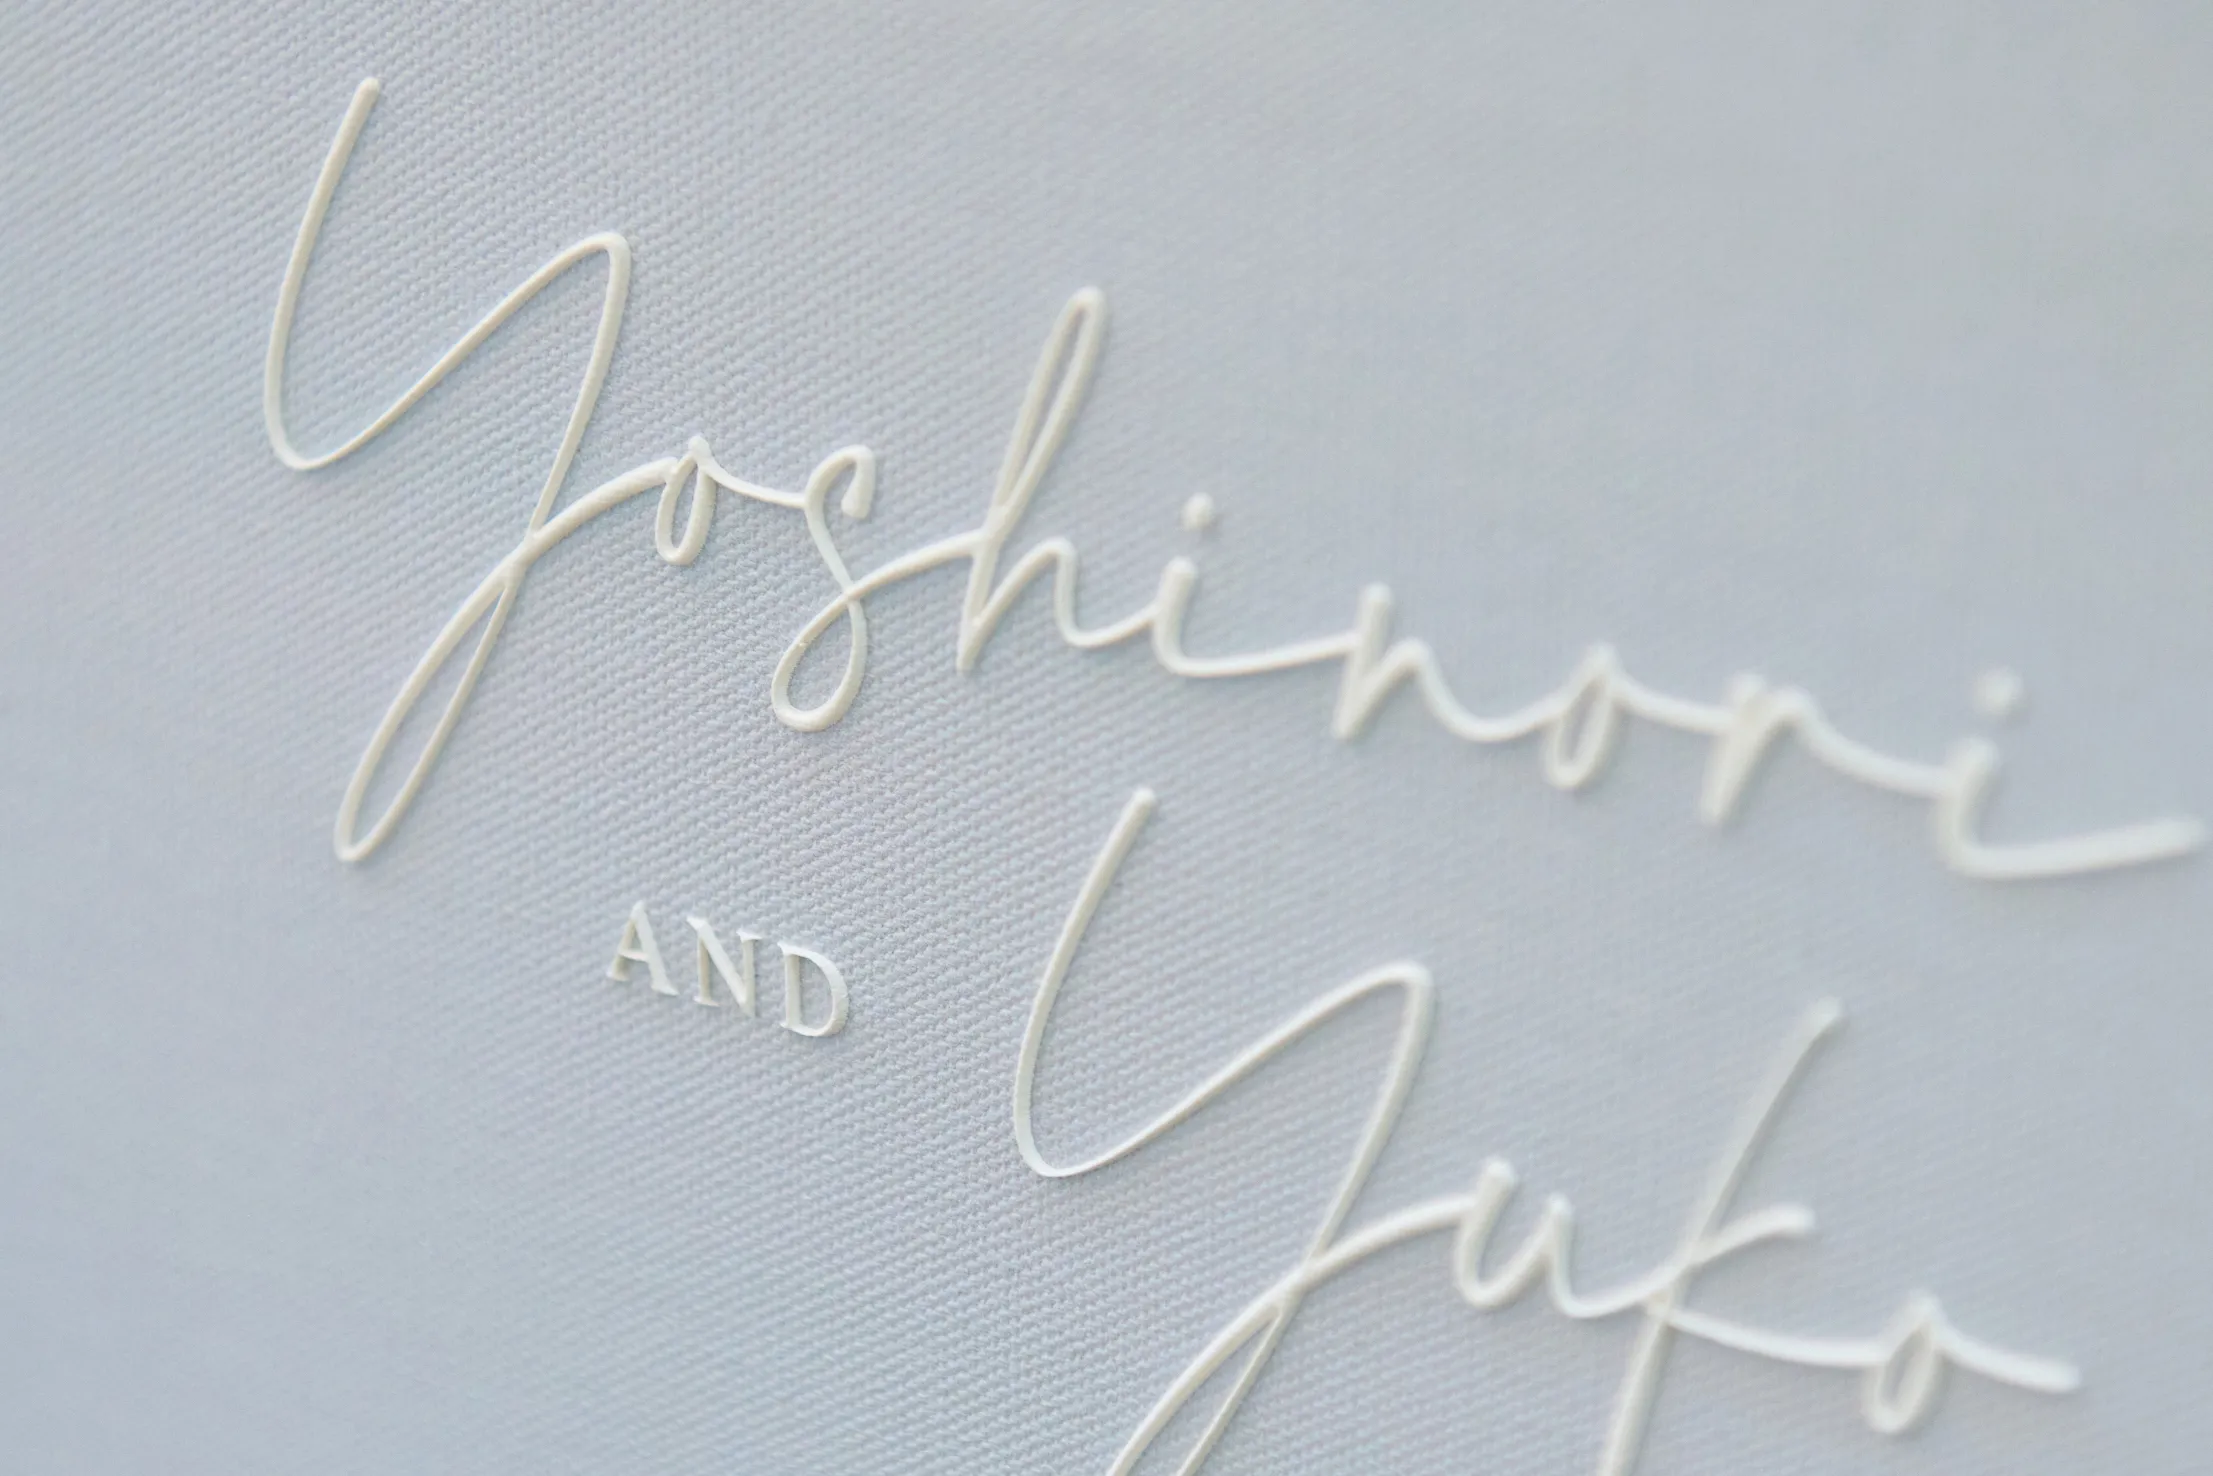 Yoshinori
AND
Yuko